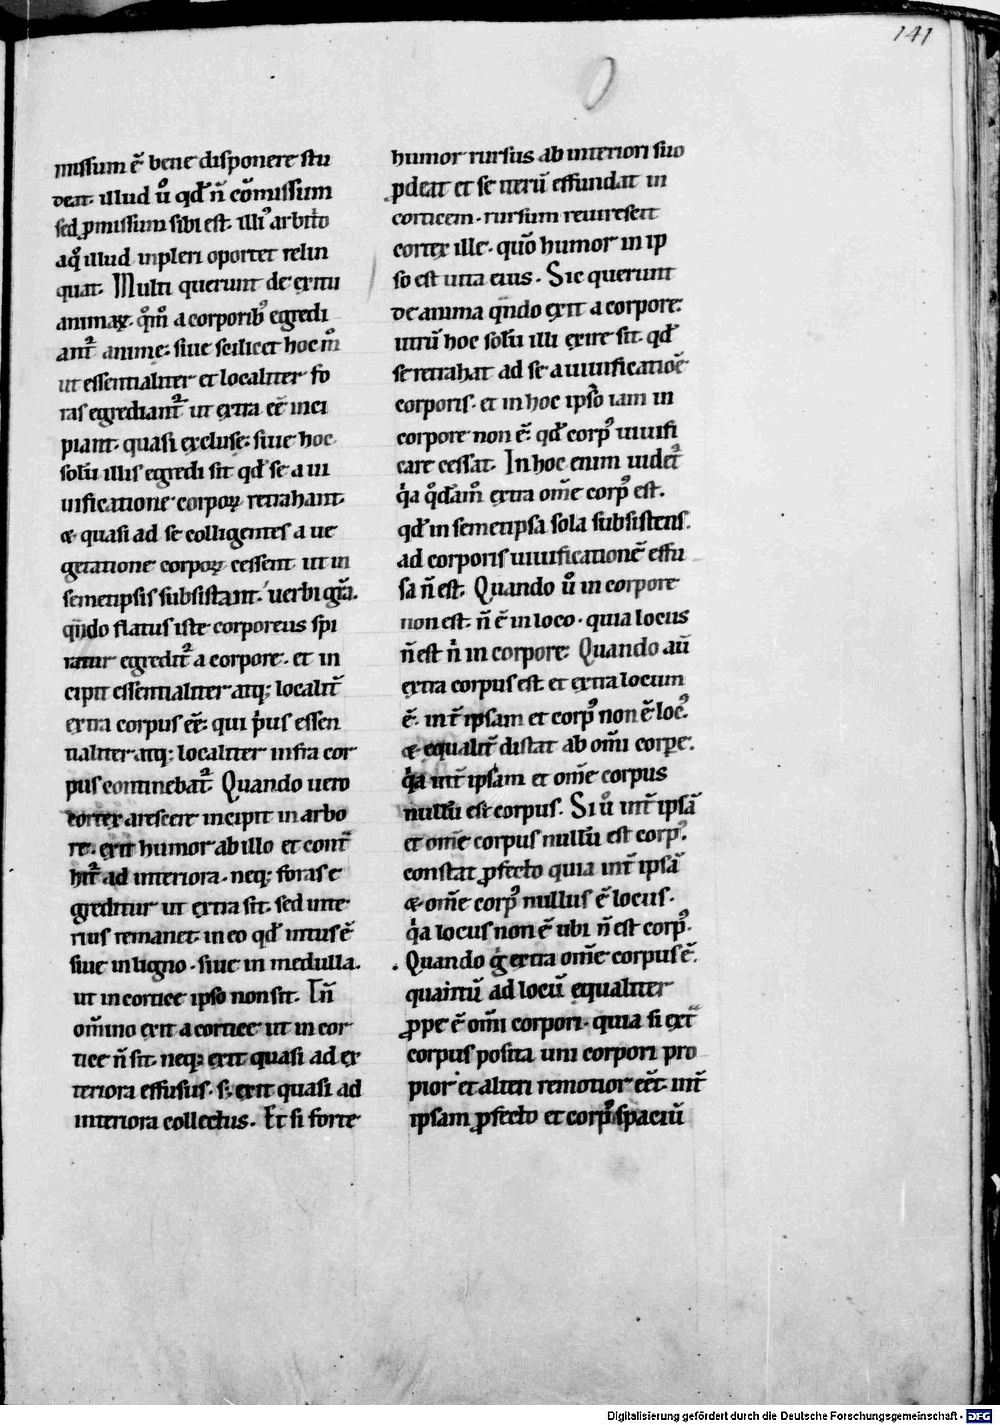 141
missum ē bene disponere stu
deat. illud ů qđ n̄ cōmissum
sed ꝓmissum sibi est. illiꝰ arbitͥo
aqͦ illud inpleri oportet relin
quat. Multi querunt de exitu
animaꝝ. qͦm̄ a corporibꝰ egredi
ant᷑ anime. siue scilicet hoc mͦ
ut essentialiter et localiter fo
ras egrediant᷑ ut extra eē inci
piant. quasi excluse. siue hoc
solū illis egredi sit qđ se a ui
uificatione corpoꝝ retrahant.
⁊ quasi ad se colligentes a ue
getatione corpoꝝ cessent. ut in
semetipsis subsistant. uerbi gr̄a.
qn̄do flatus iste corporeus spi
ratur egredit᷑ a corpore. et in
cipit essentialiter atq; localit̄
extra corpus eē. qui pͥus essen
tialiter atq; localiter infra cor
pus continebat᷑. Quando uero
cortex arescere incipit in arbo
re. exit humor ab illo et cont̄
hit᷑ ad interiora. neq; foras e
greditur ut extra sit. sed inte
rius remanet. in eo qđ intus ē
siue in ligno. siue in medulla.
ut in cortice ipso non sit. Tn̄
om̄ino exit a cortice ut in cor
tice n̄ sit. neq; exit quasi ad ex
teriora effusus. s; exit quasi ad
interiora collectus. Et si forte
humor rursus ab interiori suo
ꝓdeat et se iterū effundat in
corticem. rursum reuirescit
cortex ille. quō humor in ip
so est uita eius. Sic querunt
de anima qn̄do exit a corpore.
utrū hoc solū illi exire sit. qđ
se retrahat ad se a uiuificatiōe
corporis. et in hoc ipso iam in
corpore non ē. qđ corpꝰ uiuifi
care cessat. In hoc enim uidet᷑
qͥa qͦdam̊ extra om̄e corpꝰ est.
qđ in semetipsa sola subsistens.
ad corporis uiuificationē effu
sa n̄ est. Quando ů in corpore
non est. n̄ ē in loco. quia locus
n̄ est nͥ in corpore. Quando aū
extra corpus est. et extra locum
ē. int̄ ipsam et corpꝰ non ē locꝰ.
⁊ equalit̄ distat ab om̄i corpe.
qͥa int̄ ipsam et om̄e corpus
nullū est corpus. Si ů int̄ ipsā
et om̄e corpus nullū est corpꝰ.
constat ꝓfecto quia int̄ ipsā
⁊ om̄e corpꝰ nullus ē locus.
qͥa locus non ē ubi n̄ est corpꝰ.
Quando gͦ extra om̄e corpus ē.
quantū ad locū equaliter
ꝓpe ē om̄i corpori. quia si ext̄
corpus posita uni corpori pro
pior et alteri remotior eēt. int̄
ipsam ꝓfecto et corpꝰ spaciū
Digitalisierung gefördert durch die Deutsche Forschungsgemeinschaft - DFG